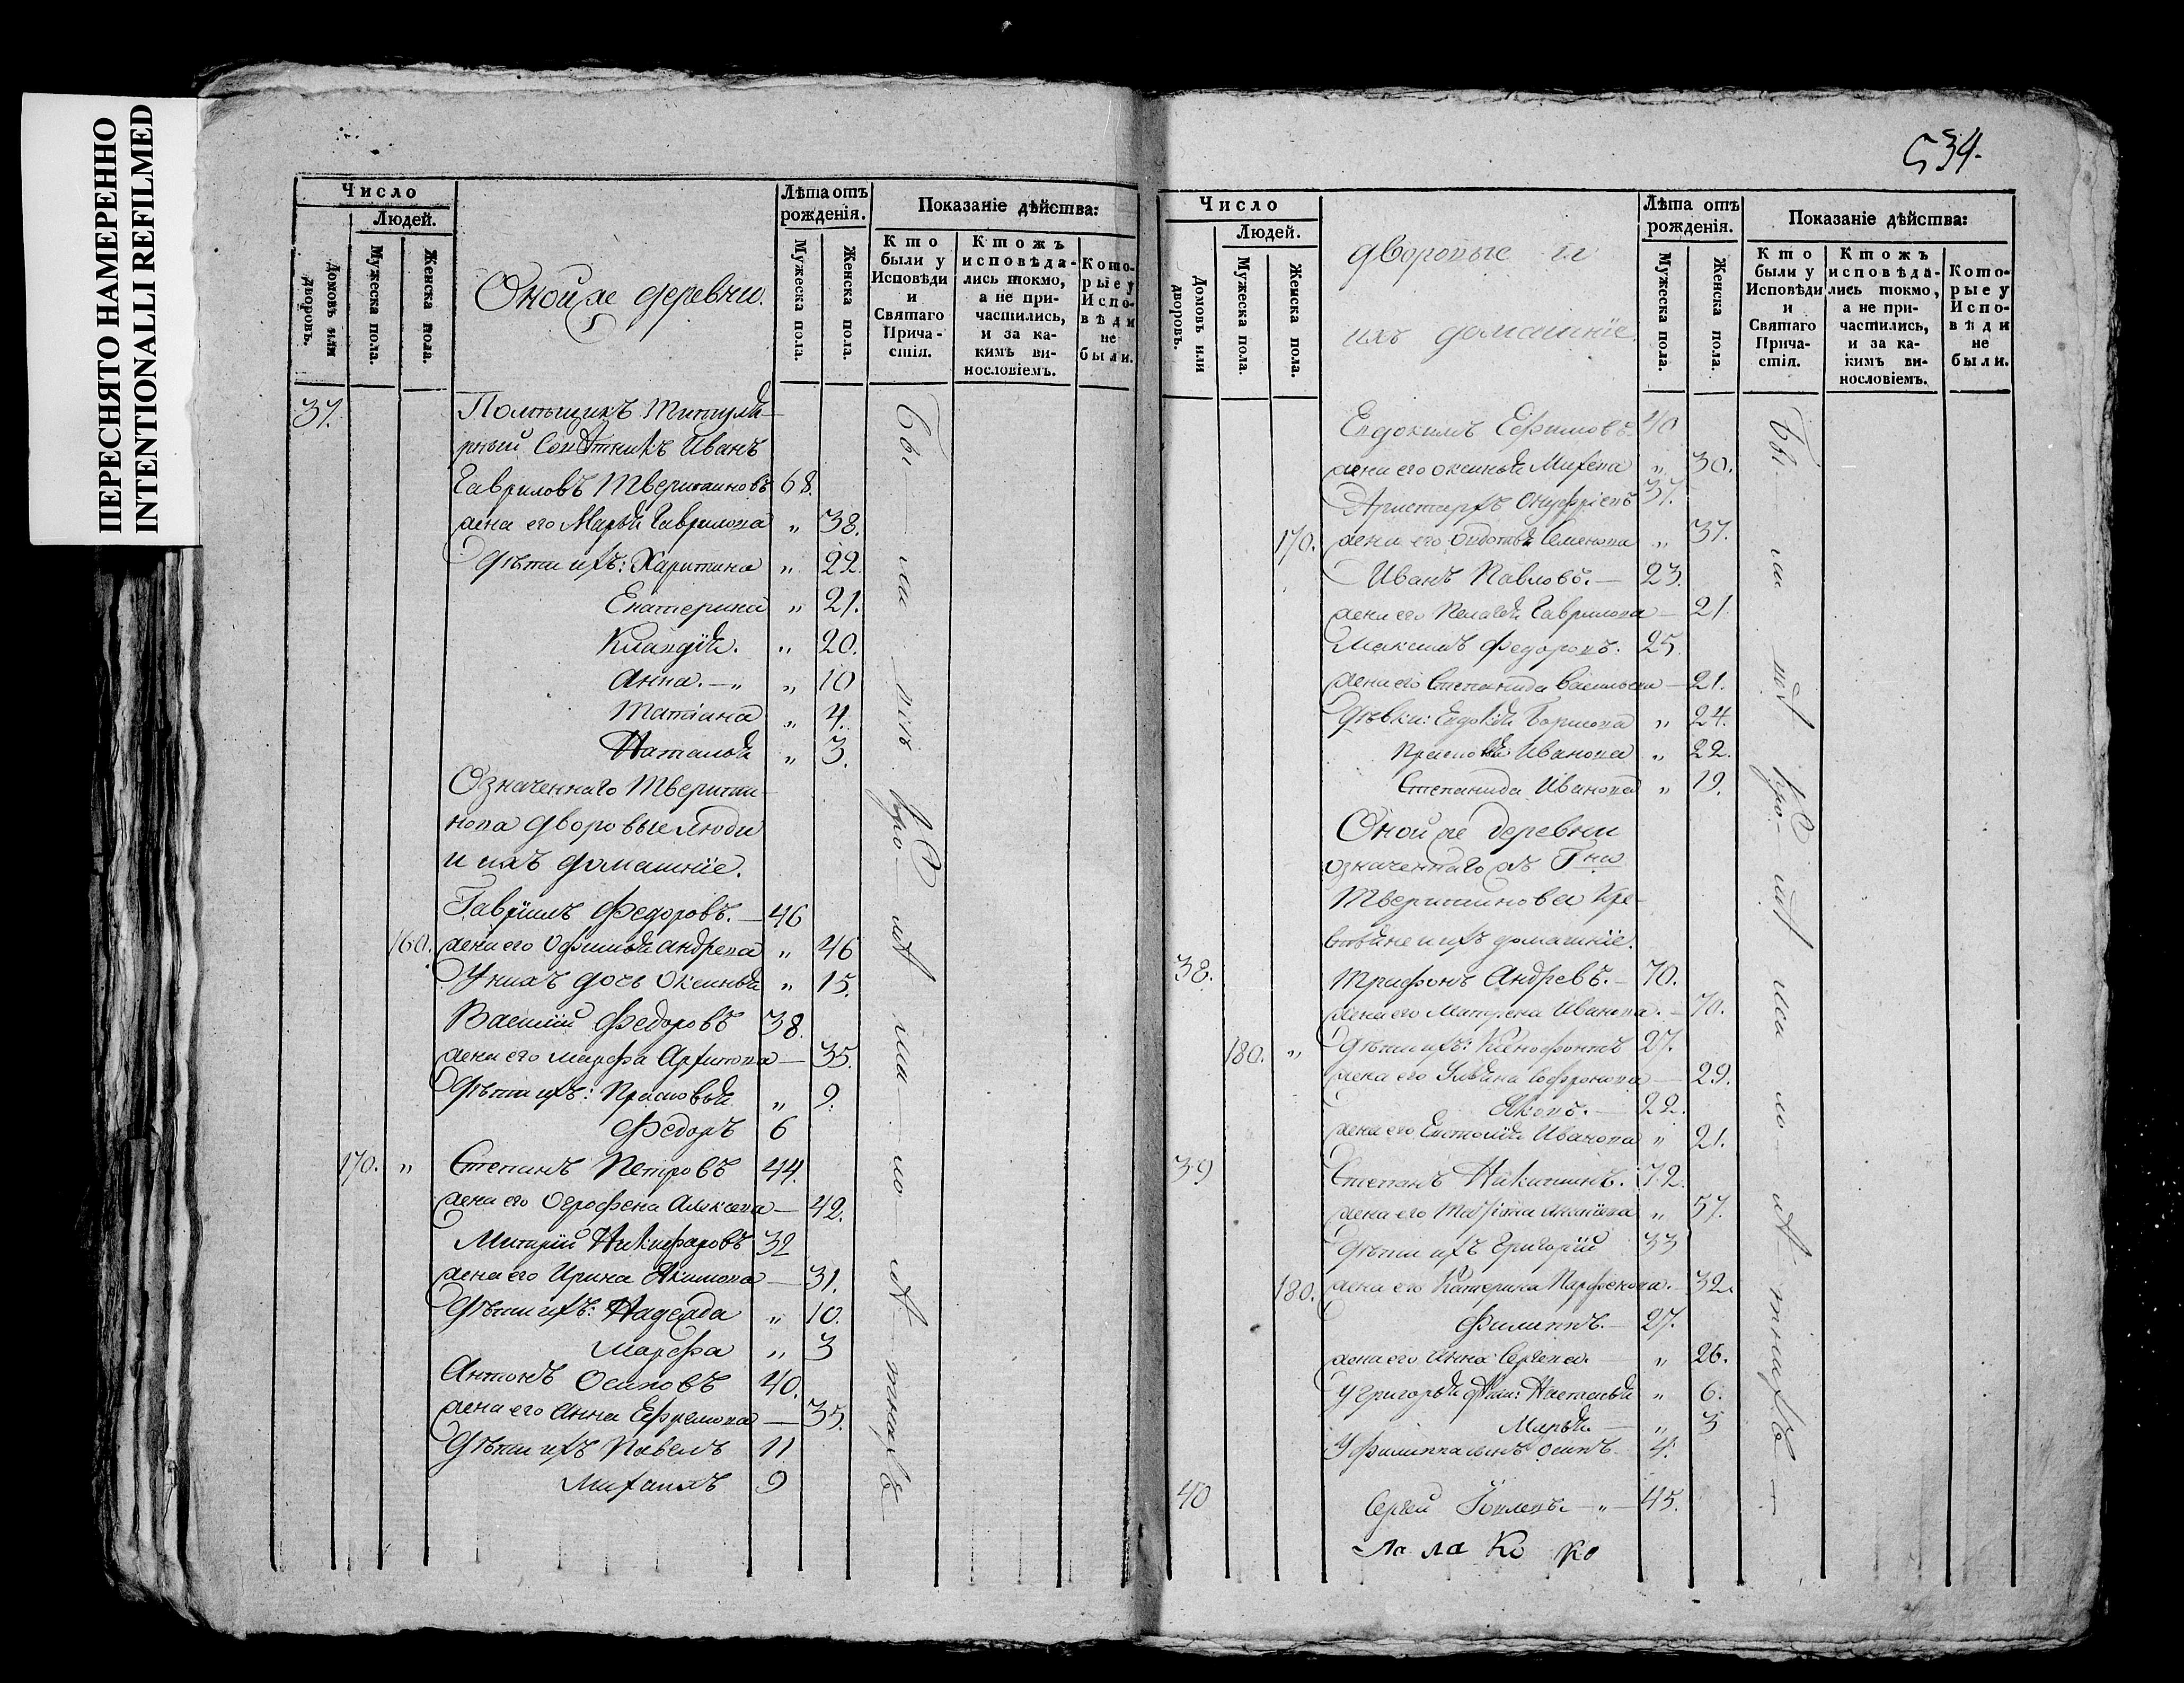 ПЕРЕСНЯТО НАМЕРЕННО
INTENTIONALLI REFILMED
Число
Людей.
Домовъ или дворовъ.
Мужеска пола.
Женска пола.
Оной же деревни.
Лѣта отъ рожденія.
Мужеска пола.
Женска пола.
Показаніе дѣйства:
Кто были у Исповѣди и Святаго Причастія.
Ктожъ исповѣдались токмо, а не причастились, и за какимъ винословіемъ.
Которые у Исповѣди не были.
37. Помѣщикъ Титуля-
рный Советникъ Иванъ
Гавриловъ Тверитиновъ 68.
жена его Марья Гаврилова „ 38.
Дѣти ихъ: Харитина „ 22.
Екатерина „ 21.
Клавдія. „ 20.
Анна. — „ „ 10
Татіана „ 4.
Наталья „ 3.
Означеннаго Тверити-
нова дворовые люди
и ихъ домашніе.
Гавріилъ Федоровъ. — 46
160. жена его Офимья Андрева „ 46
У нихъ дочь Оксинья „ 15.
Василій Федоровъ 38.
жена его Марфа Архипова — 35.
Дѣти ихъ: Прасковья „ 9.
Федоръ 6
170. „ Степанъ Петровъ 44.
жена его Огрофена Алексева — 42.
Митрій Никифаровъ 32
жена его Ирина Якимова — 31.
Дѣти ихъ: Надежда „ 10.
Марфа „ 3
Антонъ Осиповъ 40.
жена его Анна Ефремова — 35.
Дѣти ихъ Павелъ 11
Михаилъ 9
534.
Число
Людей.
Домовъ или дворовъ.
Мужеска пола.
Женска пола.
дворовые и
ихъ домашніе.
Лѣта отъ рожденія.
Мужеска пола.
Женска пола.
Показаніе дѣйства:
Кто были у Исповѣди и Святаго Причастія.
Ктожъ исповѣдались токмо, а не причастились, и за какимъ винословіемъ.
Которые у Исповѣди не были.
Евдокимъ Ефимовъ. 40
жена его Оксинья Михева „ 30.
Аристархъ Онуфріевъ 37.
170. жена его Федотья Семенова „ 37.
Иванъ Павловъ. — 23.
жена его Пелагея Гаврилова — 21
Максимъ Федоровъ. 25.
жена его Степанида Васильева — 21.
Дѣвки: Евдокія Борисова „ 24.
Прасковья Иванова „ 22.
Степанида Иванова „ 19.
Оной же деревни
означеннаго жъ Гна
Тверитинова кре-
стьяне и ихъ домашніе.
38. Трифонъ Андревъ. — 70.
жена его Матрена Иванова. — 70.
180. „ Дѣти ихъ: Ксенофонтъ 27.
жена его Ульяна Софронова — 29.
Яковъ. — 22.
жена его Иванова „ 21.
39 Степанъ Никитинъ. 72.
жена его „ 57.
Дѣти ихъ Григорій 33
180. жена его Катерина Парфенова. 32.
Филиппъ. — 27.
жена его Анна Сергева. — „ 26.
У Григорья дѣти: Настасья „ 6.
Марья. — „ 3
У Филиппа сынъ Осипъ. 4.
40 Сергей — „ — 45.
Ла ла Ко ко